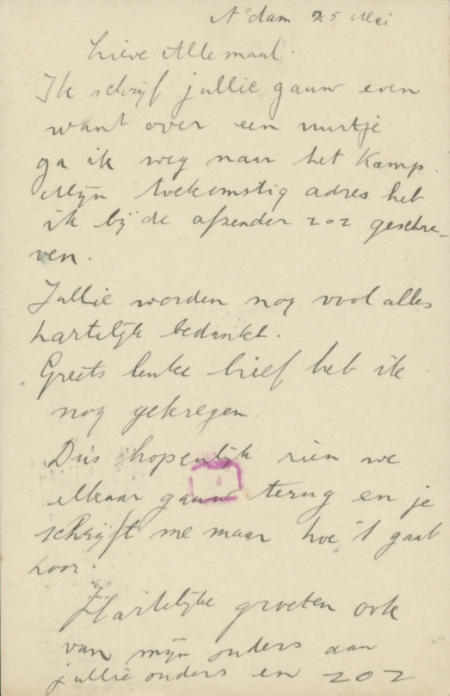 A'dam 25 Mei
Lieve Allemaal.
Ik schrijf jullie gauw even
want over een uurtje
ga ik weg naar het Kamp.
Mijn toekomstig adres heb
ik bij de afzender zoz geschre-
ven.
Jullie worden nog vool alles
hartelijk bedankt.
Greets leuke brief heb ik
nog gekregen.
Dus hopenlijk zien we
elkaar gauw terug en je
schrijft me maar hoe 't gaat
hoor.
Hartelijke groeten ook
van mijn ouders aan
jullie ouders en zoz